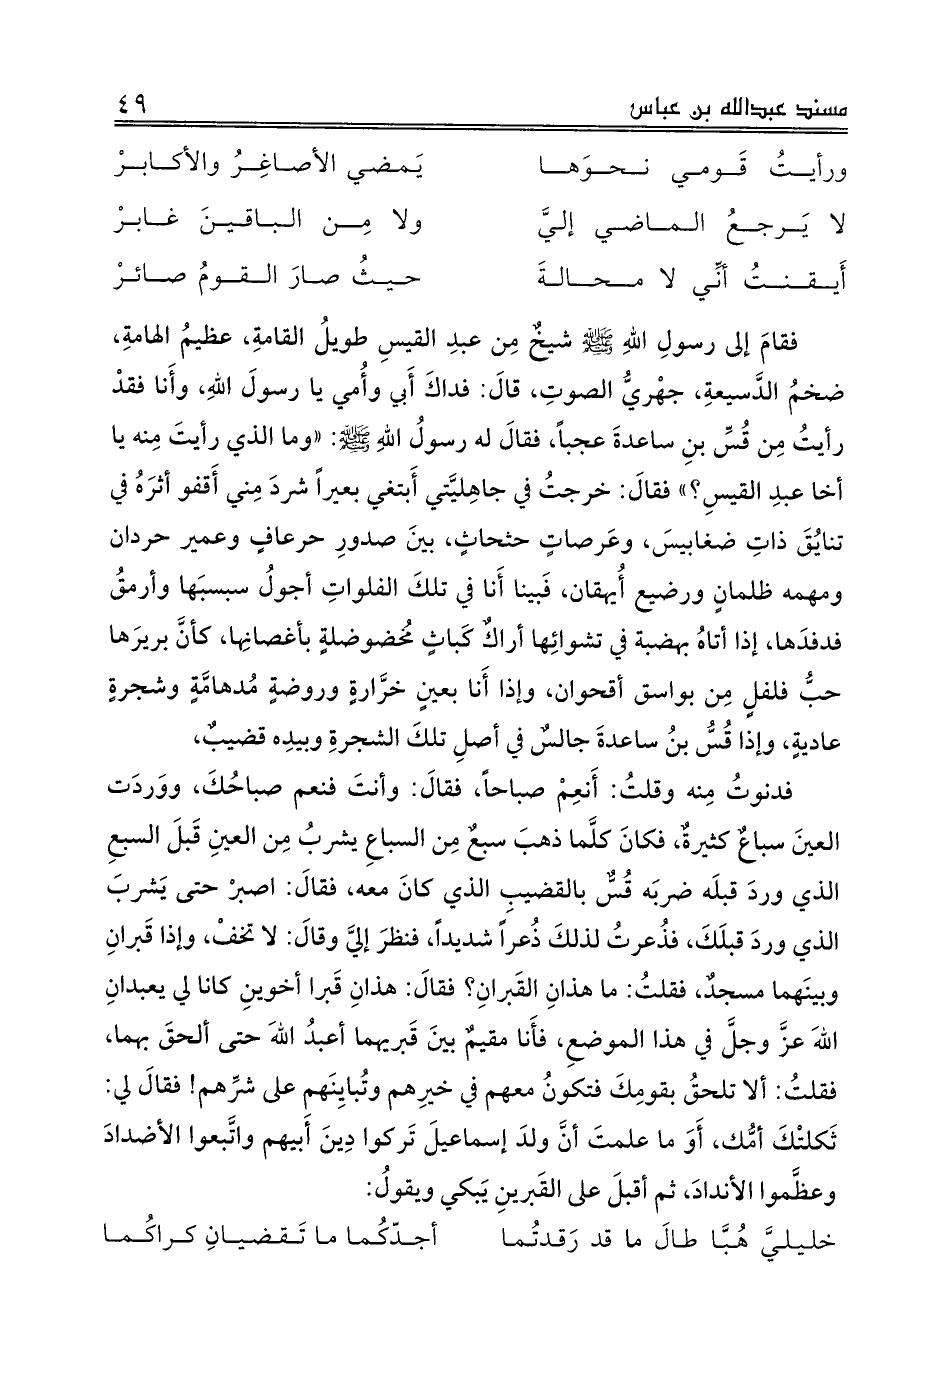 مسند عبدالله بن عباس ٤٩
ورأيتُ قَومي نحوَها يَمضي الأصاغِرُ والأكابرْ
لا يَرجعُ الماضي إليَّ ولا مِن الباقينَ غابرْ
أَيقنتُ أنِّي لا محالةَ حيثُ صارَ القومُ صائرْ
فقامَ إلى رسولِ اللهِ ﷺ شيخٌ مِن عبدِ القيسِ طويلُ القامةِ، عظيمُ الهامةِ،
ضخمُ الدَّسيعةِ، جهْريُّ الصوتِ، قالَ: فداكَ أَبي وأُمي يا رسولَ اللهِ، وأَنا فقدْ
رأيتُ مِن قُسِّ بنِ ساعدةَ عجباً، فقالَ له رسولُ اللهِ ﷺ: «وما الذي رأيتَ مِنه يا
أخا عبدِ القيسِ؟» فقالَ: خرجتُ في جاهِليَّتي أَبتغي بعيراً شردَ مِني أَقفو أثرَهُ في
تنايُقَ ذاتِ ضغابيسَ، وعَرصاتٍ حثحاثٍ، بينَ صدورِ حرعافٍ وعمير حردان
ومهمه ظلمانٍ ورضيع أُيهقان، فَبينا أَنا في تلكَ الفلواتِ أجولُ سبسبَها وأرمقُ
فدفدَها، إذا أتاهُ بهضبة في تشوائِها أراكٌ كَباثٍ مُخضوضلةٍ بأغصانِها، كأنَّ بريرَها
حبُّ فلفلٍ مِن بواسق أقحوان، وإذا أَنا بعينٍ خرَّارةٍ وروضةٍ مُدهامَّةٍ وشجرةٍ
عاديةٍ، وإذا قُسُّ بنُ ساعدةَ جالسٌ في أصلِ تلكَ الشجرةِ وبيدِه قضيبٌ،
فدنوتُ مِنه وقلتُ: أَنعِمْ صباحاً، فقالَ: وأنتَ فنعم صباحُكَ، ووَردَت
العينَ سباعٌ كثيرةٌ، فكانَ كلَّما ذهبَ سبعٌ مِن السباعِ يشربُ مِن العينِ قَبلَ السبعِ
الذي وردَ قبلَه ضربَه قُسٌّ بالقضيبِ الذي كانَ معه، فقالَ: اصبرْ حتى يَشربَ
الذي وردَ قبلَكَ، فذُعرتُ لذلكَ ذُعراً شديداً، فنظرَ إليَّ وقالَ: لا تخفْ، وإذا قَبرانِ
وبينَهما مسجدٌ، فقلتُ: ما هذانِ القَبرانِ؟ فقالَ: هذانِ قَبرا أخوينِ كانا لي يعبدانِ
اللهَ عزَّ وجلَّ في هذا الموضعِ، فأَنا مقيمٌ بينَ قبريهما أعبدُ اللهَ حتى أَلحقَ بهما،
فقلتُ: ألا تلحقُ بقومِكَ فتكونُ معهم في خيرِهم وتُباينَهم على شرِّهم! فقالَ لي:
ثَكلتْكَ أمُّك، أَوَ ما علمتَ أنَّ ولدَ إسماعيلَ تَركوا دِينَ أَبيهم واتَّبعوا الأضدادَ
وعظَّموا الأندادَ، ثم أقبلَ على القَبرينِ يَبكي ويقولُ:
خليليَّ هُبَّا طالَ ما قد رَقدتُما أجدّكُما ما تَقضيانِ كراكُما